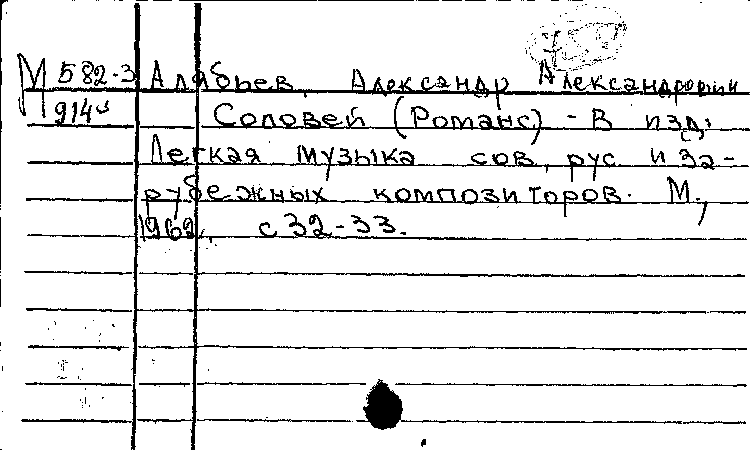 М 582-3 Алябьев, Александр Александрович
914 Соловей (Романс) - В изд.
Легкая музыка сов, рус. и за-
рубежных композиторов. М.,
1962, с 32-33.